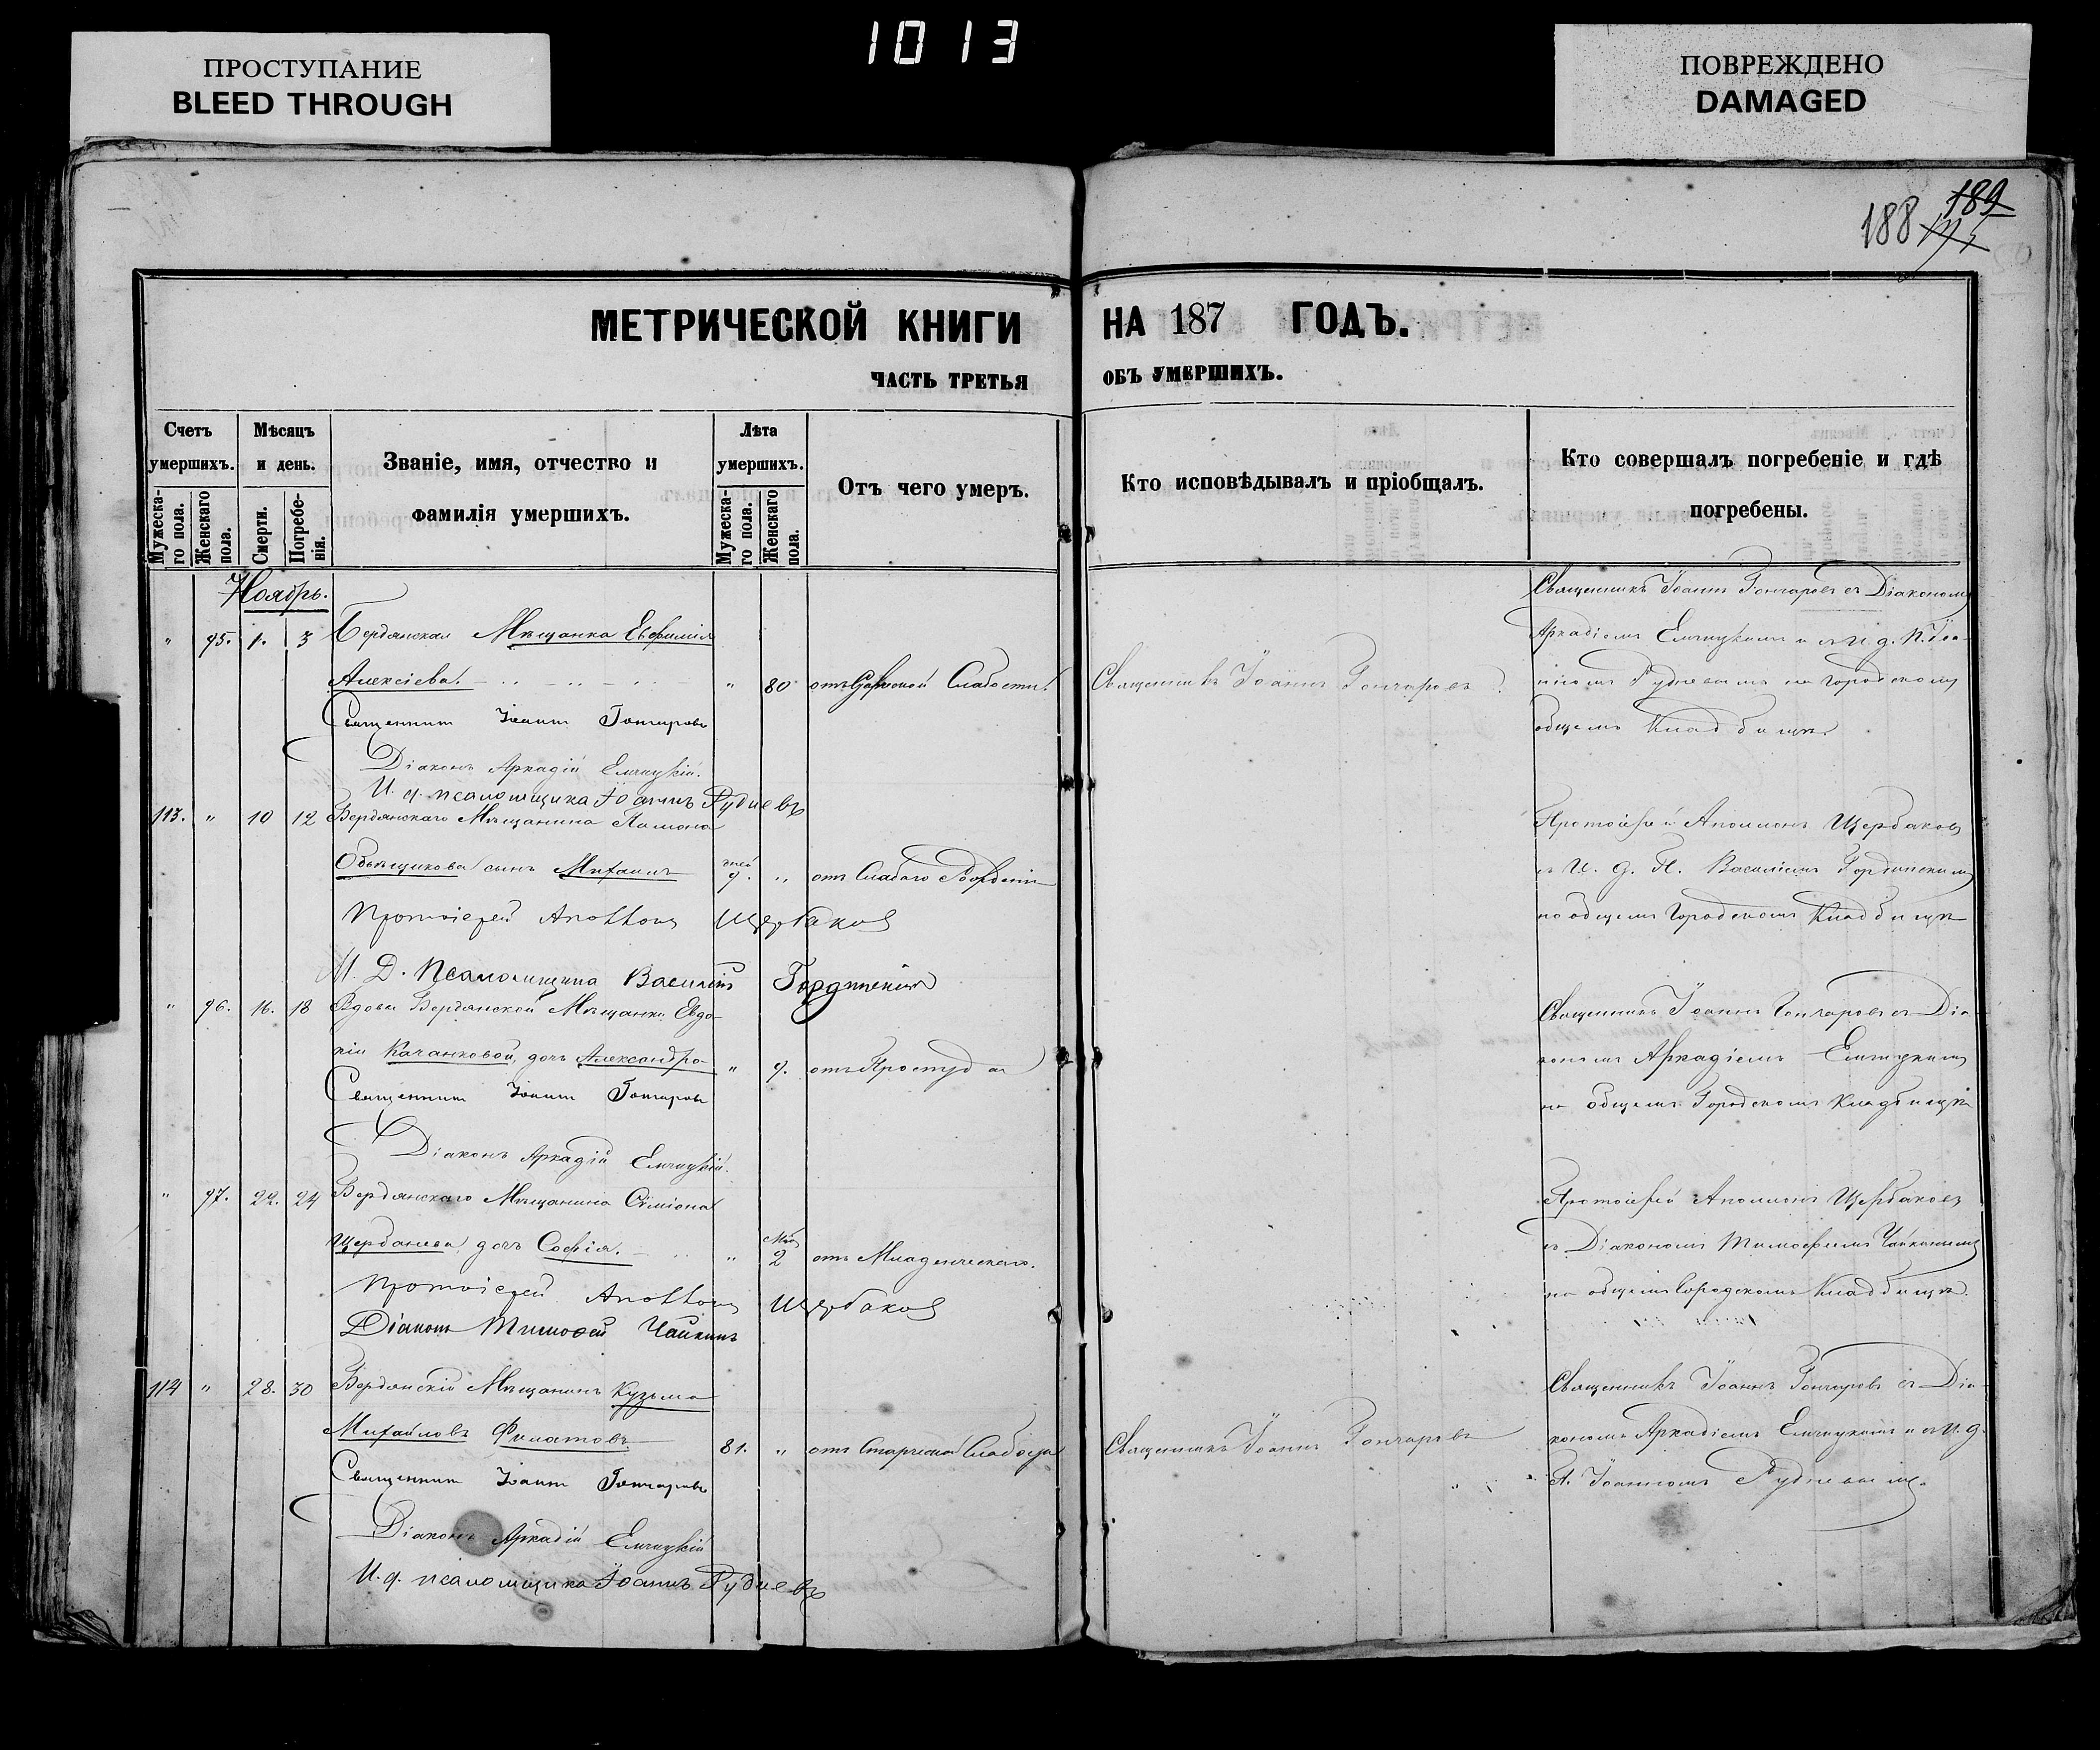 ПРОСТУПАНИЕ
BLEED THROUGH
1013
ПОВРЕЖДЕНО
DAMAGED
188 189
МЕТРИЧЕСКОЙ КНИГИ НА 187 ГОДЪ.
ЧАСТЬ ТРЕТЬЯ ОБЪ УМЕРШИХЪ.
Счетъ умершихъ.
Мужескаго пола.
Женскаго пола.
Мѣсяцъ и день.
Смерти.
Погребенія.
Званіе, имя, отчество и фамилія умершихъ.
Лѣта умершихъ.
Мужескаго пола.
Женскаго пола.
Отъ чего умеръ.
Кто исповѣдывалъ и пріобщалъ.
Кто совершалъ погребеніе и гдѣ погребены.
Ноябрь.
" 95. 1. 3 Бердянская Мѣщанка Евфимія
Алексіева. " 80 отъ Слабости
Священникъ Іоаннъ Гончаровъ
Діаконъ Аркадій Елчицкій.
И. д. псаломщика Іоаннъ Рудневъ
Священникъ Іоаннъ Гончаровъ
Священникъ Іоаннъ Гончаровъ съ Діакономъ
Аркадіемъ Елчицкимъ и съ И. д. П. Іоа-
нномъ Рудневымъ на городскомъ
общемъ Кладбищѣ.
113. " 10 12 Бердянскаго Мѣщанина
Объѣщикова сынъ Михаилъ дней 9. " отъ Слабаго
Протоіерей Аполлонъ Щербаковъ
И. Д. Псаломщика Василій Гординскій
Протоіерей Аполлонъ Щербаковъ
съ И. д. П. Василіемъ Гординскимъ
на общемъ Городскомъ Кладбищѣ
" 96. 16. 18 Вдовы Бердянской Мѣщанки Евдо-
кіи Качанковой, дочь Александра " 9. отъ Простуды
Священникъ Іоаннъ Гончаровъ
Діаконъ Аркадій Елчицкій.
Священникъ Іоаннъ Гончаровъ съ Діа-
кономъ Аркадіемъ Елчицкимъ
на общемъ Городскомъ Кладбищѣ
" 97. 22. 24 Бердянскаго Мѣщанина Симіона
дочь Софія. " 2 отъ Младенческаго.
Протоіерей Аполлонъ Щербаковъ
Діаконъ Тимофей Чайкинъ
Протоіерей Аполлонъ Щербаковъ
съ Діакономъ Тимофеемъ Чайкинымъ
на общемъ Городскомъ Кладбищѣ.
114 " 28. 30 Бердянскій Мѣщанинъ Кузьма
Михайловъ Филатовъ. 81. " отъ Старческой Слабости
Священникъ Іоаннъ Гончаровъ
Діаконъ Аркадій Елчицкій
И. д. псаломщика Іоаннъ Рудневъ
Священникъ Іоаннъ Гончаровъ
Священникъ Іоаннъ Гончаровъ съ Діа-
кономъ Аркадіемъ Елчицкимъ и съ И. д.
П. Іоанномъ Рудневымъ.